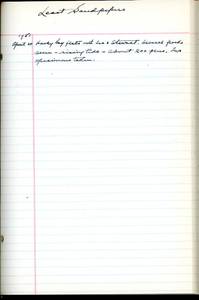 Least Sandpipers
April 20 Harley Bay flats with Leo & Stewart. Several flocks
seen - rising tide - about 200 pens. Two
specimens taken.